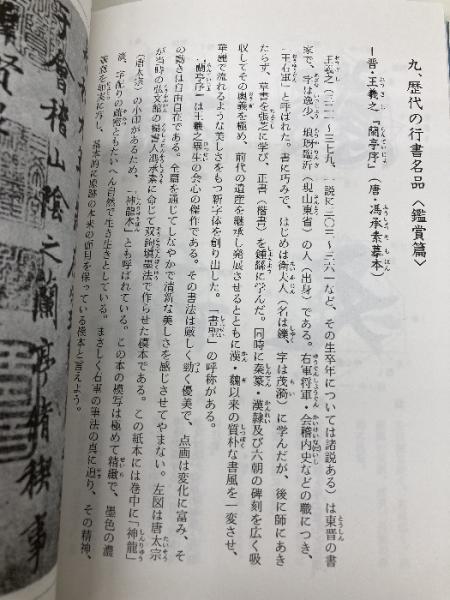 九、歴代の行書名品〈鑑賞篇〉
一晋・王羲之「蘭亭序」（唐・馮承素摹本）
王羲之（三二一～三七九、一説に三〇三～三六一など、その生卒年については諸説ある）は東晋の書
家で、字は逸少、琅琊臨沂（現山東省）の人（出身）である。右軍将軍・会稽内史などの職につき、
「王右軍」と呼ばれた。書に巧みで、はじめは衛夫人（名は鑠、字は茂漪）に学んだが、後に師にあき
たらず、草書を張芝に学び、正書（楷書）を鍾繇に学んだ。同時に秦篆・漢隷及び六朝の碑刻を広く吸
収してその奥義を極め、前代の遺産を継承し発展させるとともに漢・魏以来の質朴な書風を一変させ、
華麗で流れるような美しさをもつ新字体を創り出した。「書聖」の呼称がある。
「蘭亭序」は王羲之畢生の会心の傑作である。その書法は厳しく勁く優美で、点画は変化に富み、そ
の動きは自由自在である。全篇を通してしなやかで清新な美しさを感じさせてやまない。左図は唐太宗
が当時の弘文館の搨書人馮承素に命じて双鉤塡墨法で作らせた模本である。この紙本には巻中に「神龍」
（唐太宗）の小印があるため、「神龍本」とも呼ばれている。この本の模写は極めて精緻で、墨色の濃
淡、字配りの疎密ともたいへん自然で生き生きとしている。まさしく右軍の筆法の真に迫り、その精神、
気息を如実に写し、基本的に原跡の本来の面目を保っている模本と言えよう。
于會稽山陰之蘭亭脩禊事